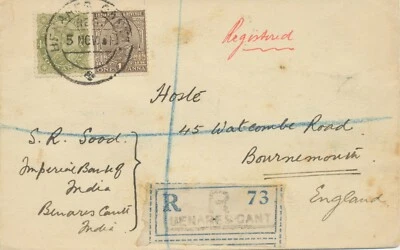 BENARES CANT.
REG.
5 NOV
ONE ANNA
Registered
Hoste
45 Watcombe Road.
Bournemouth
England
S. R. Sood.
Imperial Bank of
India
Benares Cantt
India
R 73
R
BENARES-CANT